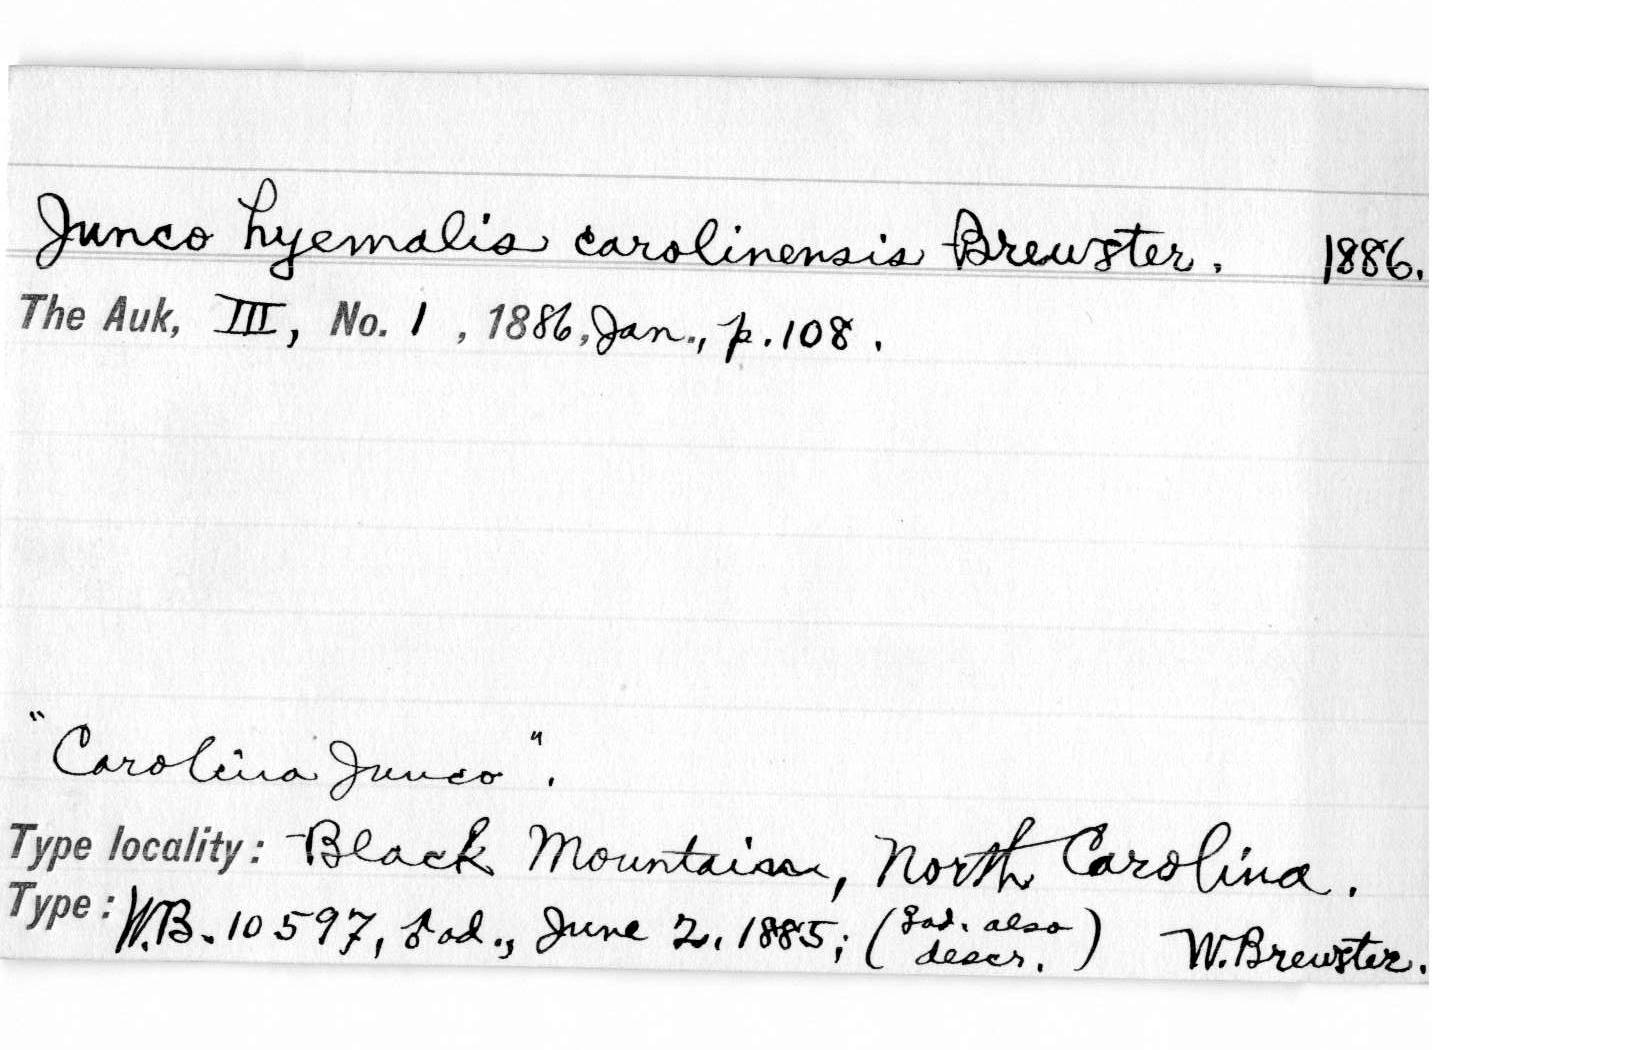 Junco hyemalis carolinensis Brewster. 1886.
The Auk, III, No. 1, 1886, Jan., p. 108.
"Carolina Junco".
Type locality: Black Mountain, North Carolina.
Type: W.B. 10597, ad., June 2, 1885; (ad. also descr.) W. Brewster.